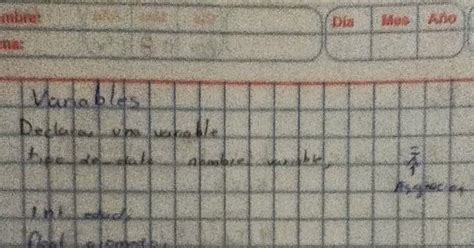 mbre:
Día Mes Año
ma:
Variables
Declarar una variable
tipo de dato nombre variable;
=
Asignación
int edad;
float promedio;